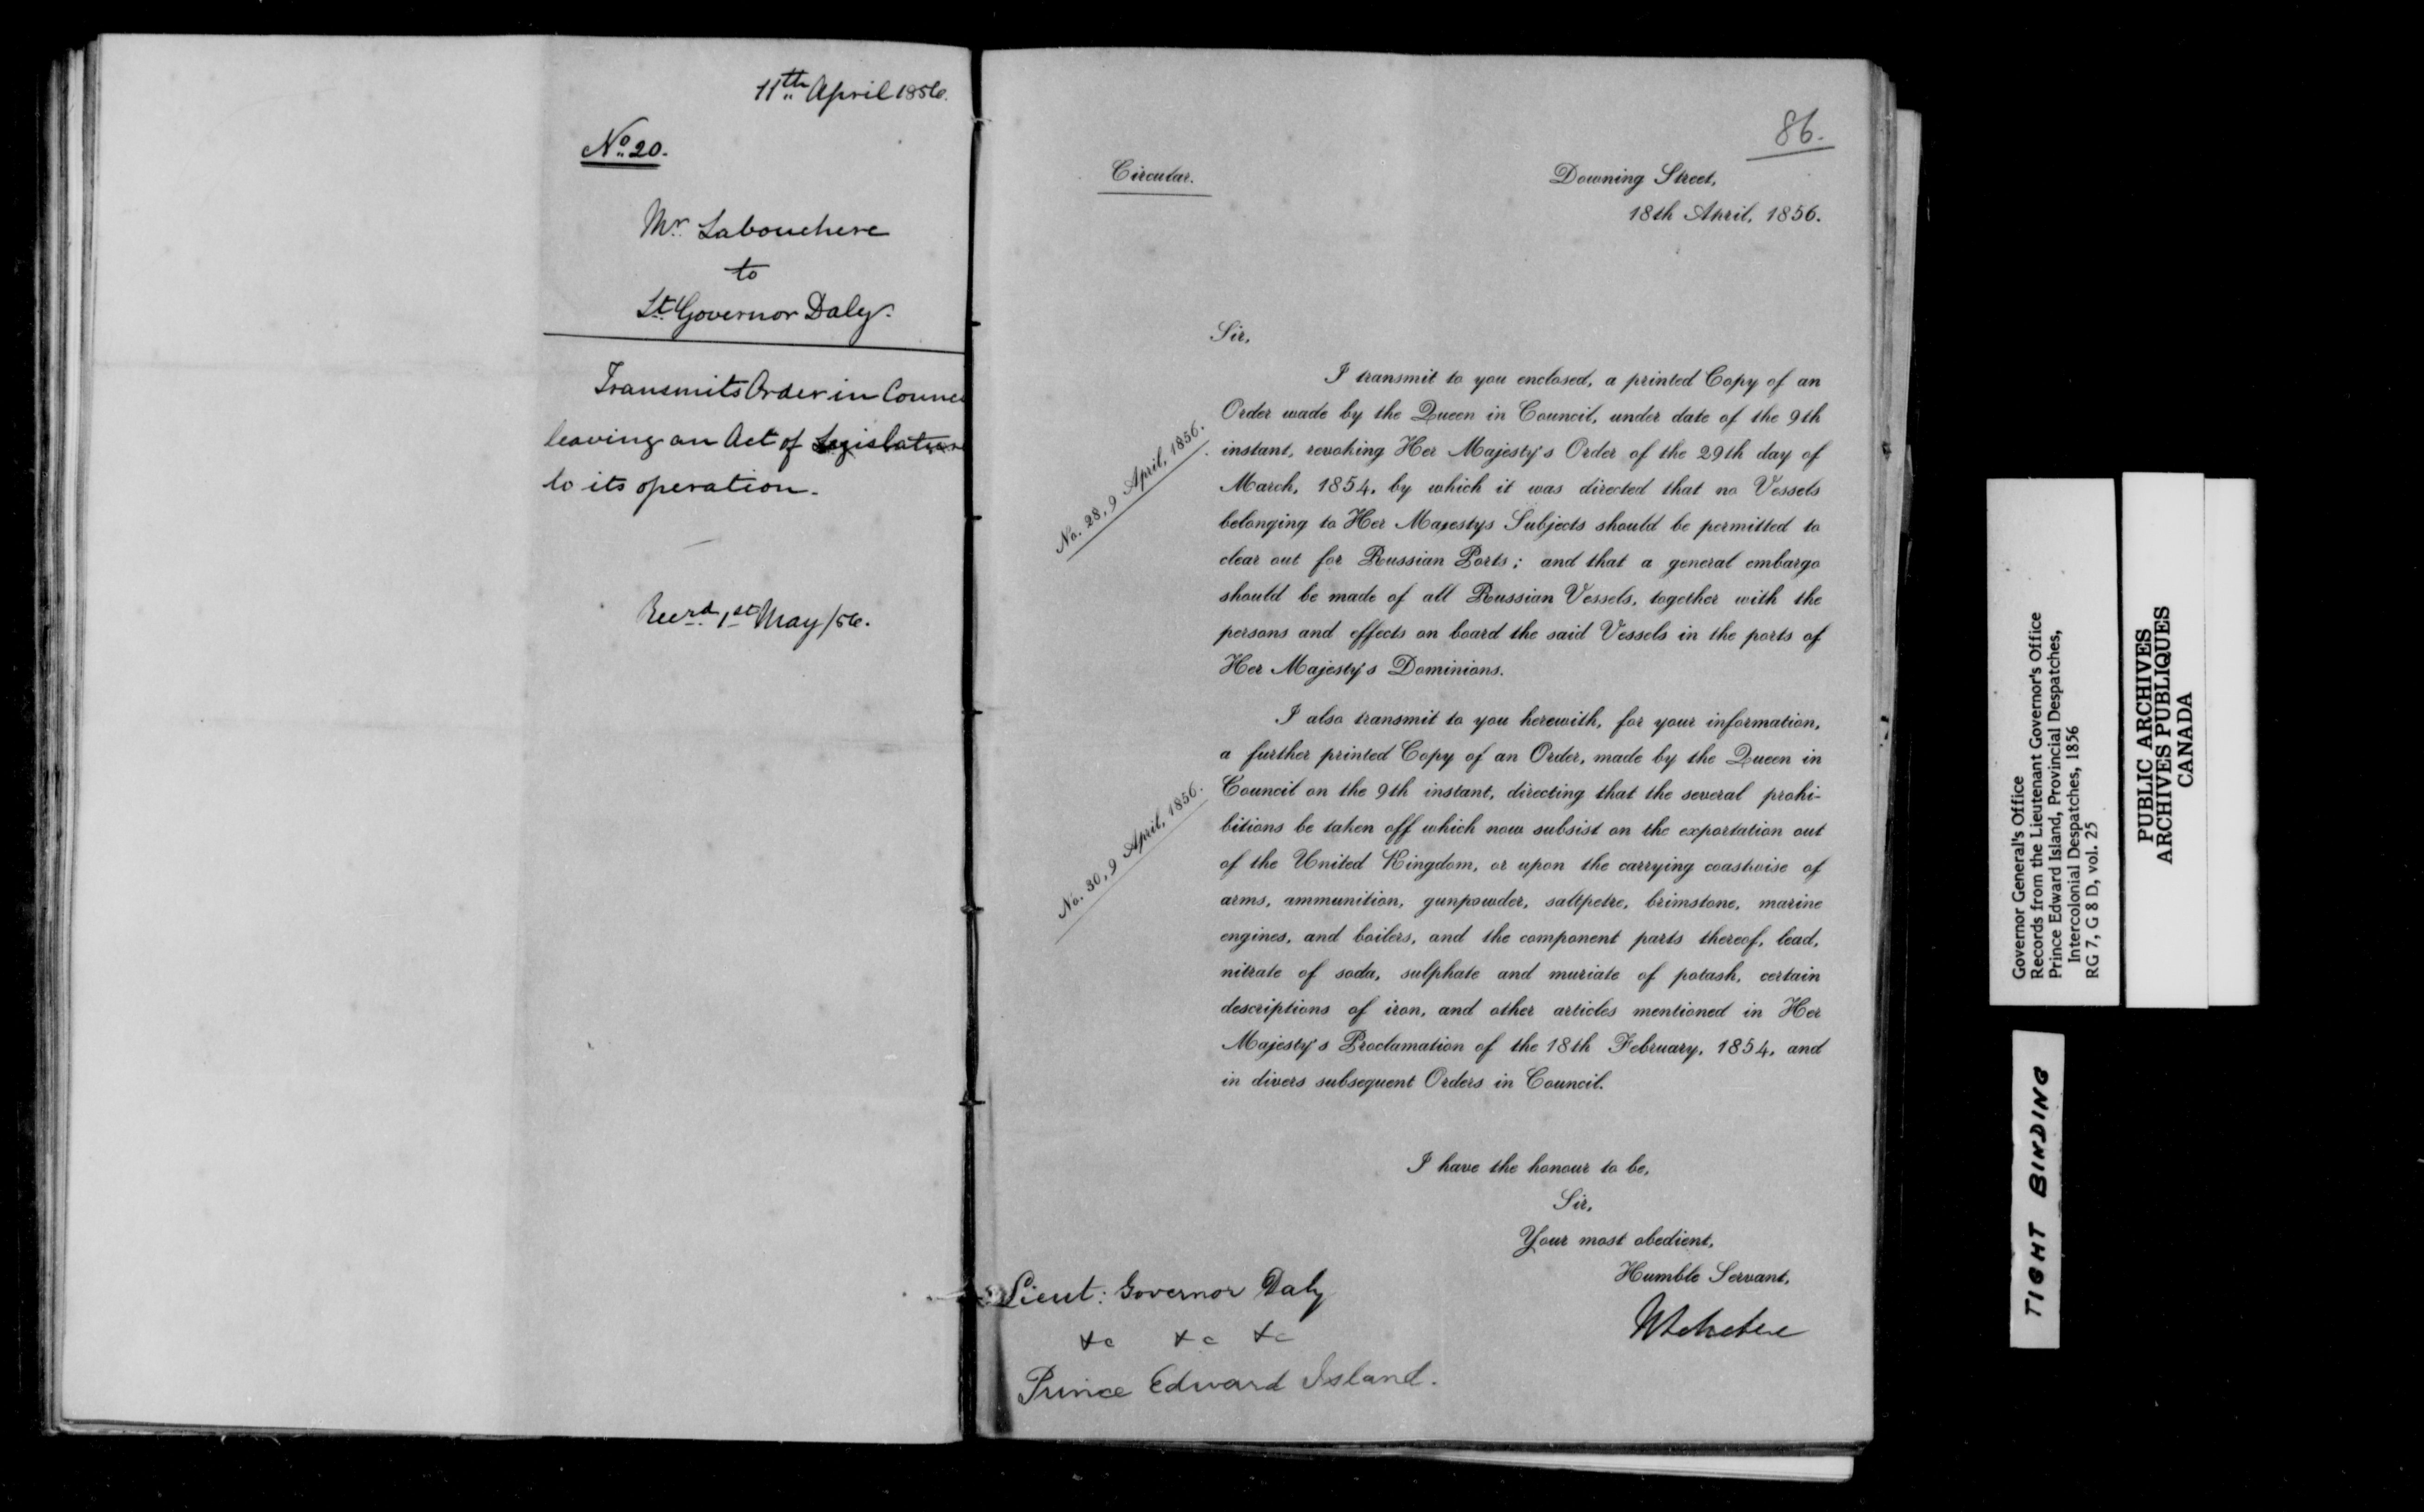 11th April 1856.
No. 20.
Mr. Labouchere
to
Lt. Governor Daly.
Transmits Order in Counc
leaving an Act of Legislature
to its operation.
Recvd. 1st May /56.
86.
Circular.
Downing Street,
18th April, 1856.
Sir,
I transmit to you enclosed, a printed Copy of an
Order made by the Queen in Council, under date of the 9th
instant, revoking Her Majesty's Order of the 29th day of
March, 1854, by which it was directed that no Vessels
belonging to Her Majestys Subjects should be permitted to
clear out for Russian Ports; and that a general embargo
should be made of all Russian Vessels, together with the
persons and effects on board the said Vessels in the ports of
Her Majesty's Dominions.
No. 28, 9 April, 1856.
I also transmit to you herewith, for your information,
a further printed Copy of an Order, made by the Queen in
Council on the 9th instant, directing that the several prohi-
bitions be taken off which now subsist on the exportation out
of the United Kingdom, or upon the carrying coastwise of
arms, ammunition, gunpowder, saltpetre, brimstone, marine
engines, and boilers, and the component parts thereof, lead,
nitrate of soda, sulphate and muriate of potash, certain
descriptions of iron, and other articles mentioned in Her
Majesty's Proclamation of the 18th February, 1854, and
in divers subsequent Orders in Council.
No. 30, 9 April, 1856.
I have the honour to be,
Sir,
Your most obedient,
Humble Servant,
Lieut: Governor Daly
&c &c &c
Prince Edward Island.
Governor General's Office
Records from the Lieutenant Governor's Office
Prince Edward Island, Provincial Despatches,
Intercolonial Despatches, 1856
RG 7, G 8 D, vol. 25
PUBLIC ARCHIVES
ARCHIVES PUBLIQUES
CANADA
TIGHT BINDING